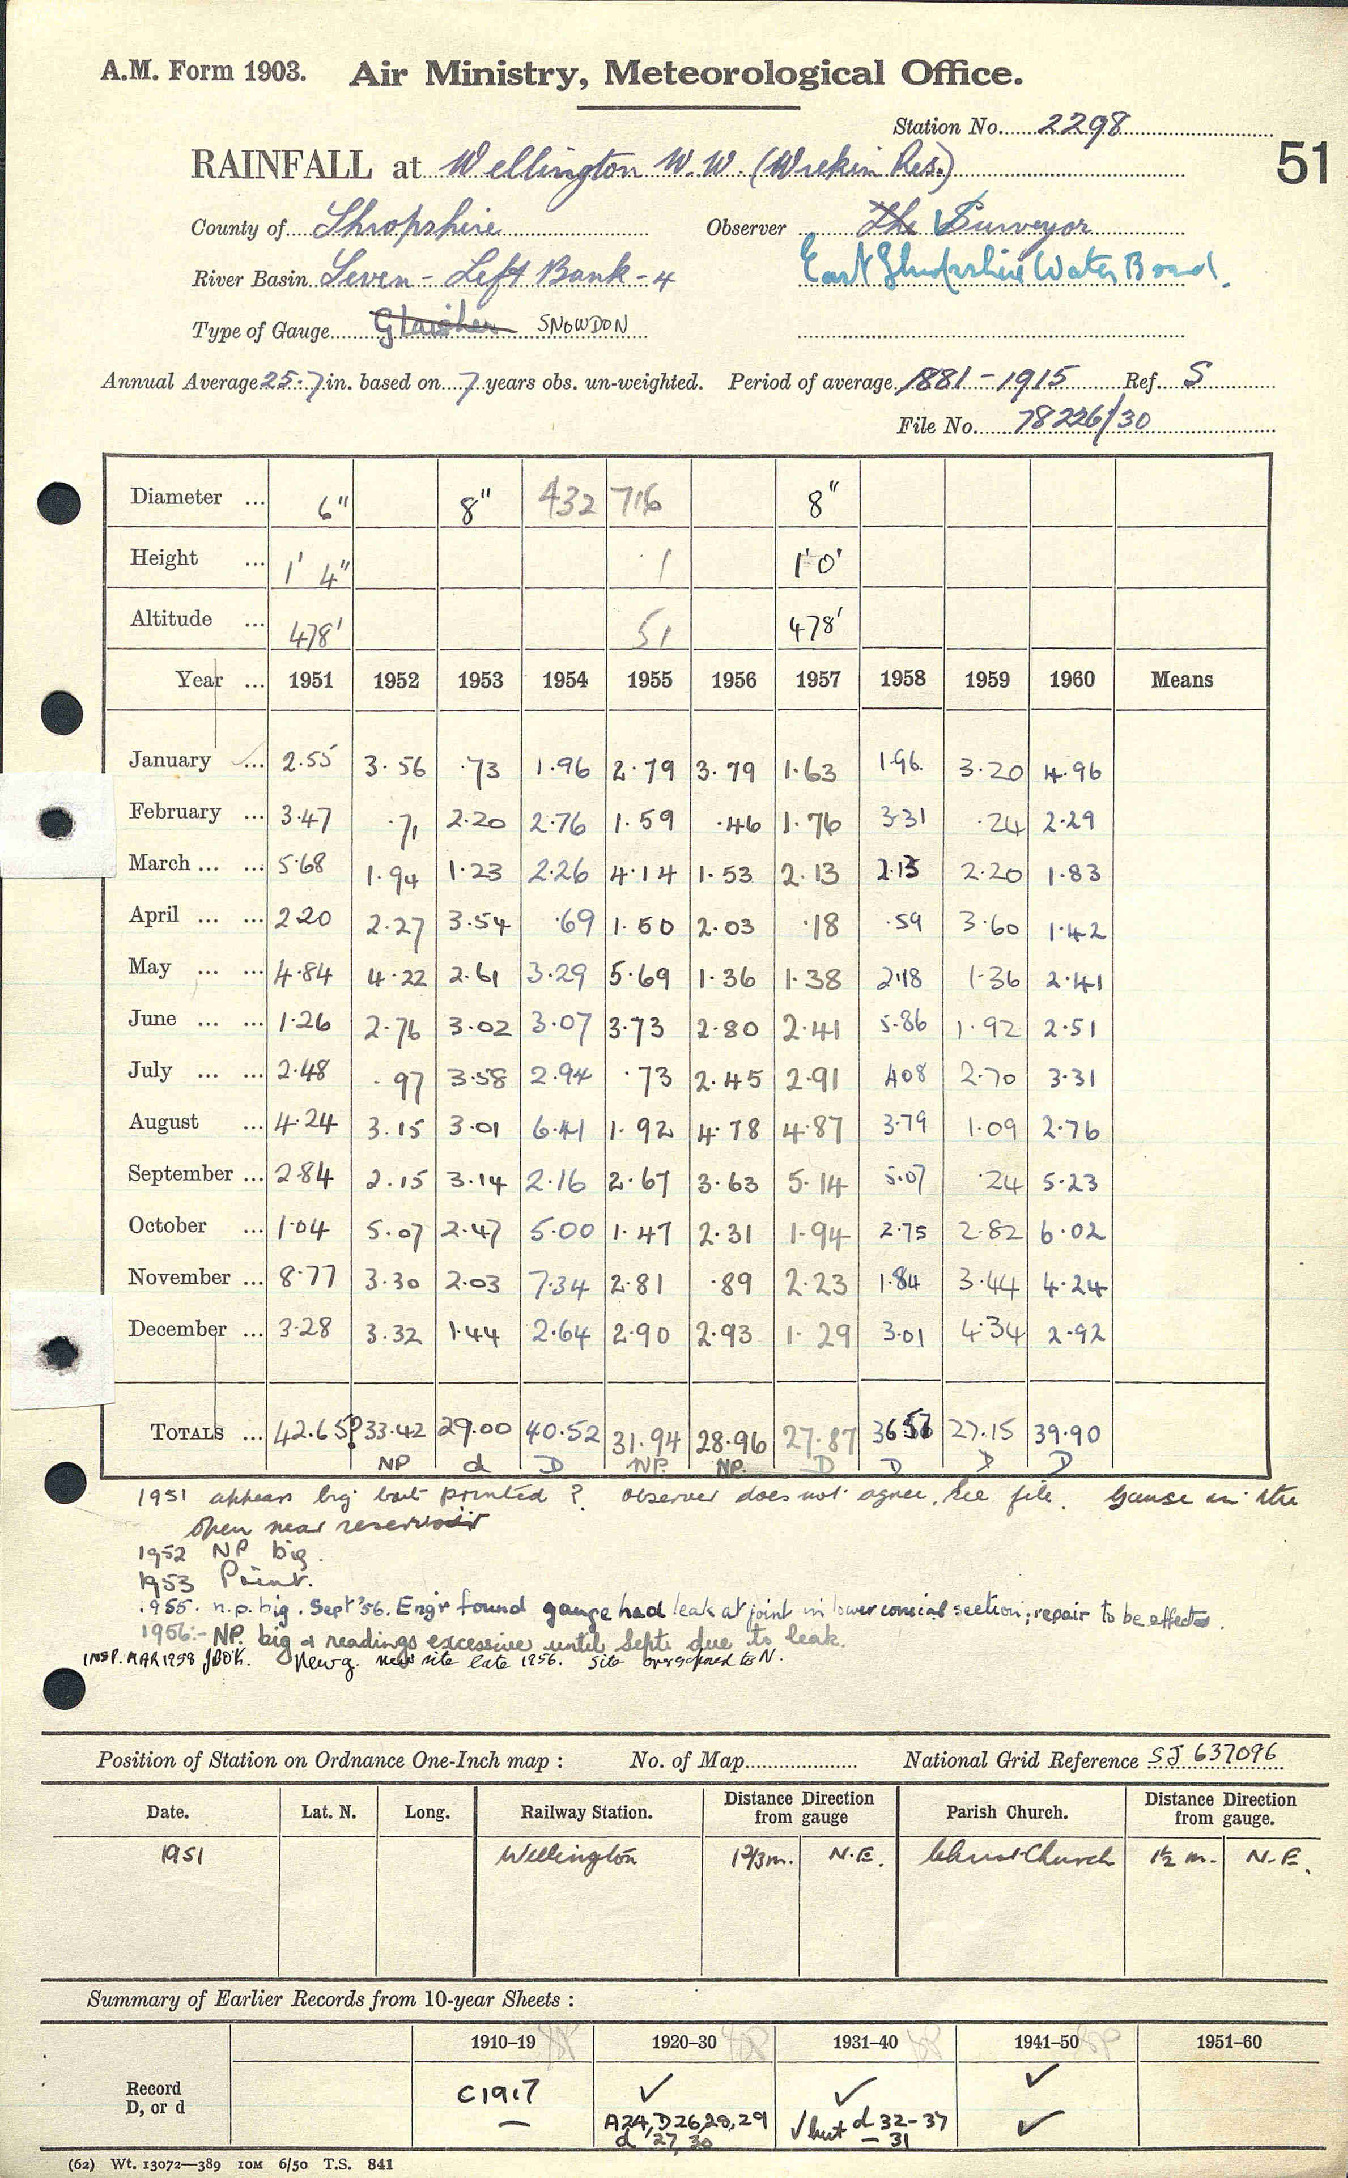 A.M. Form 1903. Air Ministry, Meteorological Office.
Station No. 2298
51
RAINFALL at Wellington W.W. (Wrekin Res.)
County of Shropshire Observer The Surveyor
River Basin Seven - Left Bank - 4 East Shropshire Water Board.
Type of Gauge Glaisher SNOWDON
Annual Average 25.7 in. based on 7 years obs. un-weighted. Period of average 1881 - 1915 Ref. S
File No. 78226/30
Diameter ... 6" 8" 432 716 8"
Height ... 1' 4" 1 1'0'
Altitude ... 478' 51 478'
Year ... 1951 1952 1953 1954 1955 1956 1957 1958 1959 1960 Means
January ... 2.55 3.56 .73 1.96 2.79 3.79 1.63 1.96 3.20 4.96
February ... 3.47 .71 2.20 2.76 1.59 .46 1.76 3.31 .24 2.29
March ... ... 5.68 1.94 1.23 2.26 4.14 1.53 2.13 2.13 2.20 1.83
April ... ... 2.20 2.27 3.54 .69 1.50 2.03 .18 .59 3.60 1.42
May ... ... 4.84 4.22 2.61 3.29 5.69 1.36 1.38 2.18 1.36 2.41
June ... ... 1.26 2.76 3.02 3.07 3.73 2.80 2.41 5.86 1.92 2.51
July ... ... 2.48 .97 3.58 2.94 .73 2.45 2.91 4.08 2.70 3.31
August ... 4.24 3.15 3.01 6.41 1.92 4.78 4.87 3.79 1.09 2.76
September ... 2.84 2.15 3.14 2.16 2.67 3.63 5.14 5.07 .24 5.23
October ... 1.04 5.07 2.47 5.00 1.47 2.31 1.94 2.75 2.82 6.02
November ... 8.77 3.30 2.03 7.34 2.81 .89 2.23 1.84 3.44 4.24
December ... 3.28 3.32 1.44 2.64 2.90 2.93 1.29 3.01 4.34 2.92
TOTALS ... 42.65? 33.42 29.00 40.52 31.94 28.96 27.87 36.57 27.15 39.90
NP d D NP. NP. D D D D
1951 appears big but printed ? Observer does not agree. See file. Gauge in the
open near reservoir
1952 NP big.
1953 Print.
1955. n.p. big. Sept '56. Eng'r found gauge had leak at joint in lower conical section; repair to be effected.
1956:- NP. big & readings excessive until Sept. due to leak.
INSP. MAR 1958 New g. new site late 1956. Site to N.
Position of Station on Ordnance One-Inch map : No. of Map National Grid Reference SJ 637096
Date. Lat. N. Long. Railway Station. Distance Direction from gauge Parish Church. Distance Direction from gauge.
1951 Wellington 1 2/3 m. N.E. Christ Church 1½ m. N.E.
Summary of Earlier Records from 10-year Sheets :
1910–19 1920–30 1931–40 1941–50 1951–60
Record C1917 ✓ ✓ ✓
D, or d — A24, D26,28,29 ✓ but d 32-37 ✓
d '27, 30 — 31
(62) Wt. 13072—389 10M 6/50 T.S. 841